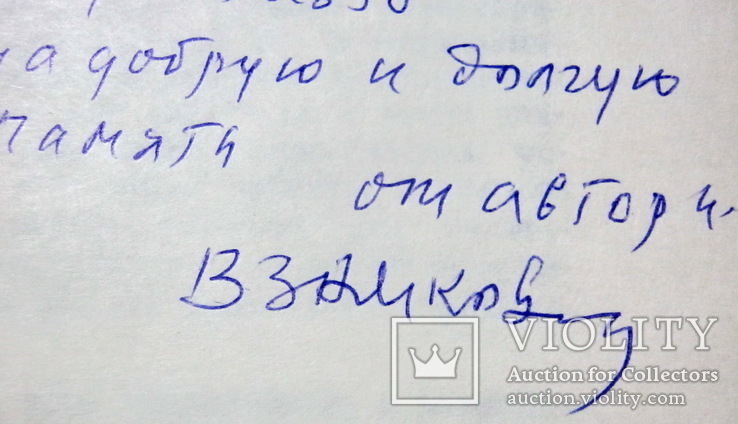 на добрую и долгую
память
от автора.
В Замковой
VIOLITY
Auction for Collectors
auction.violity.com